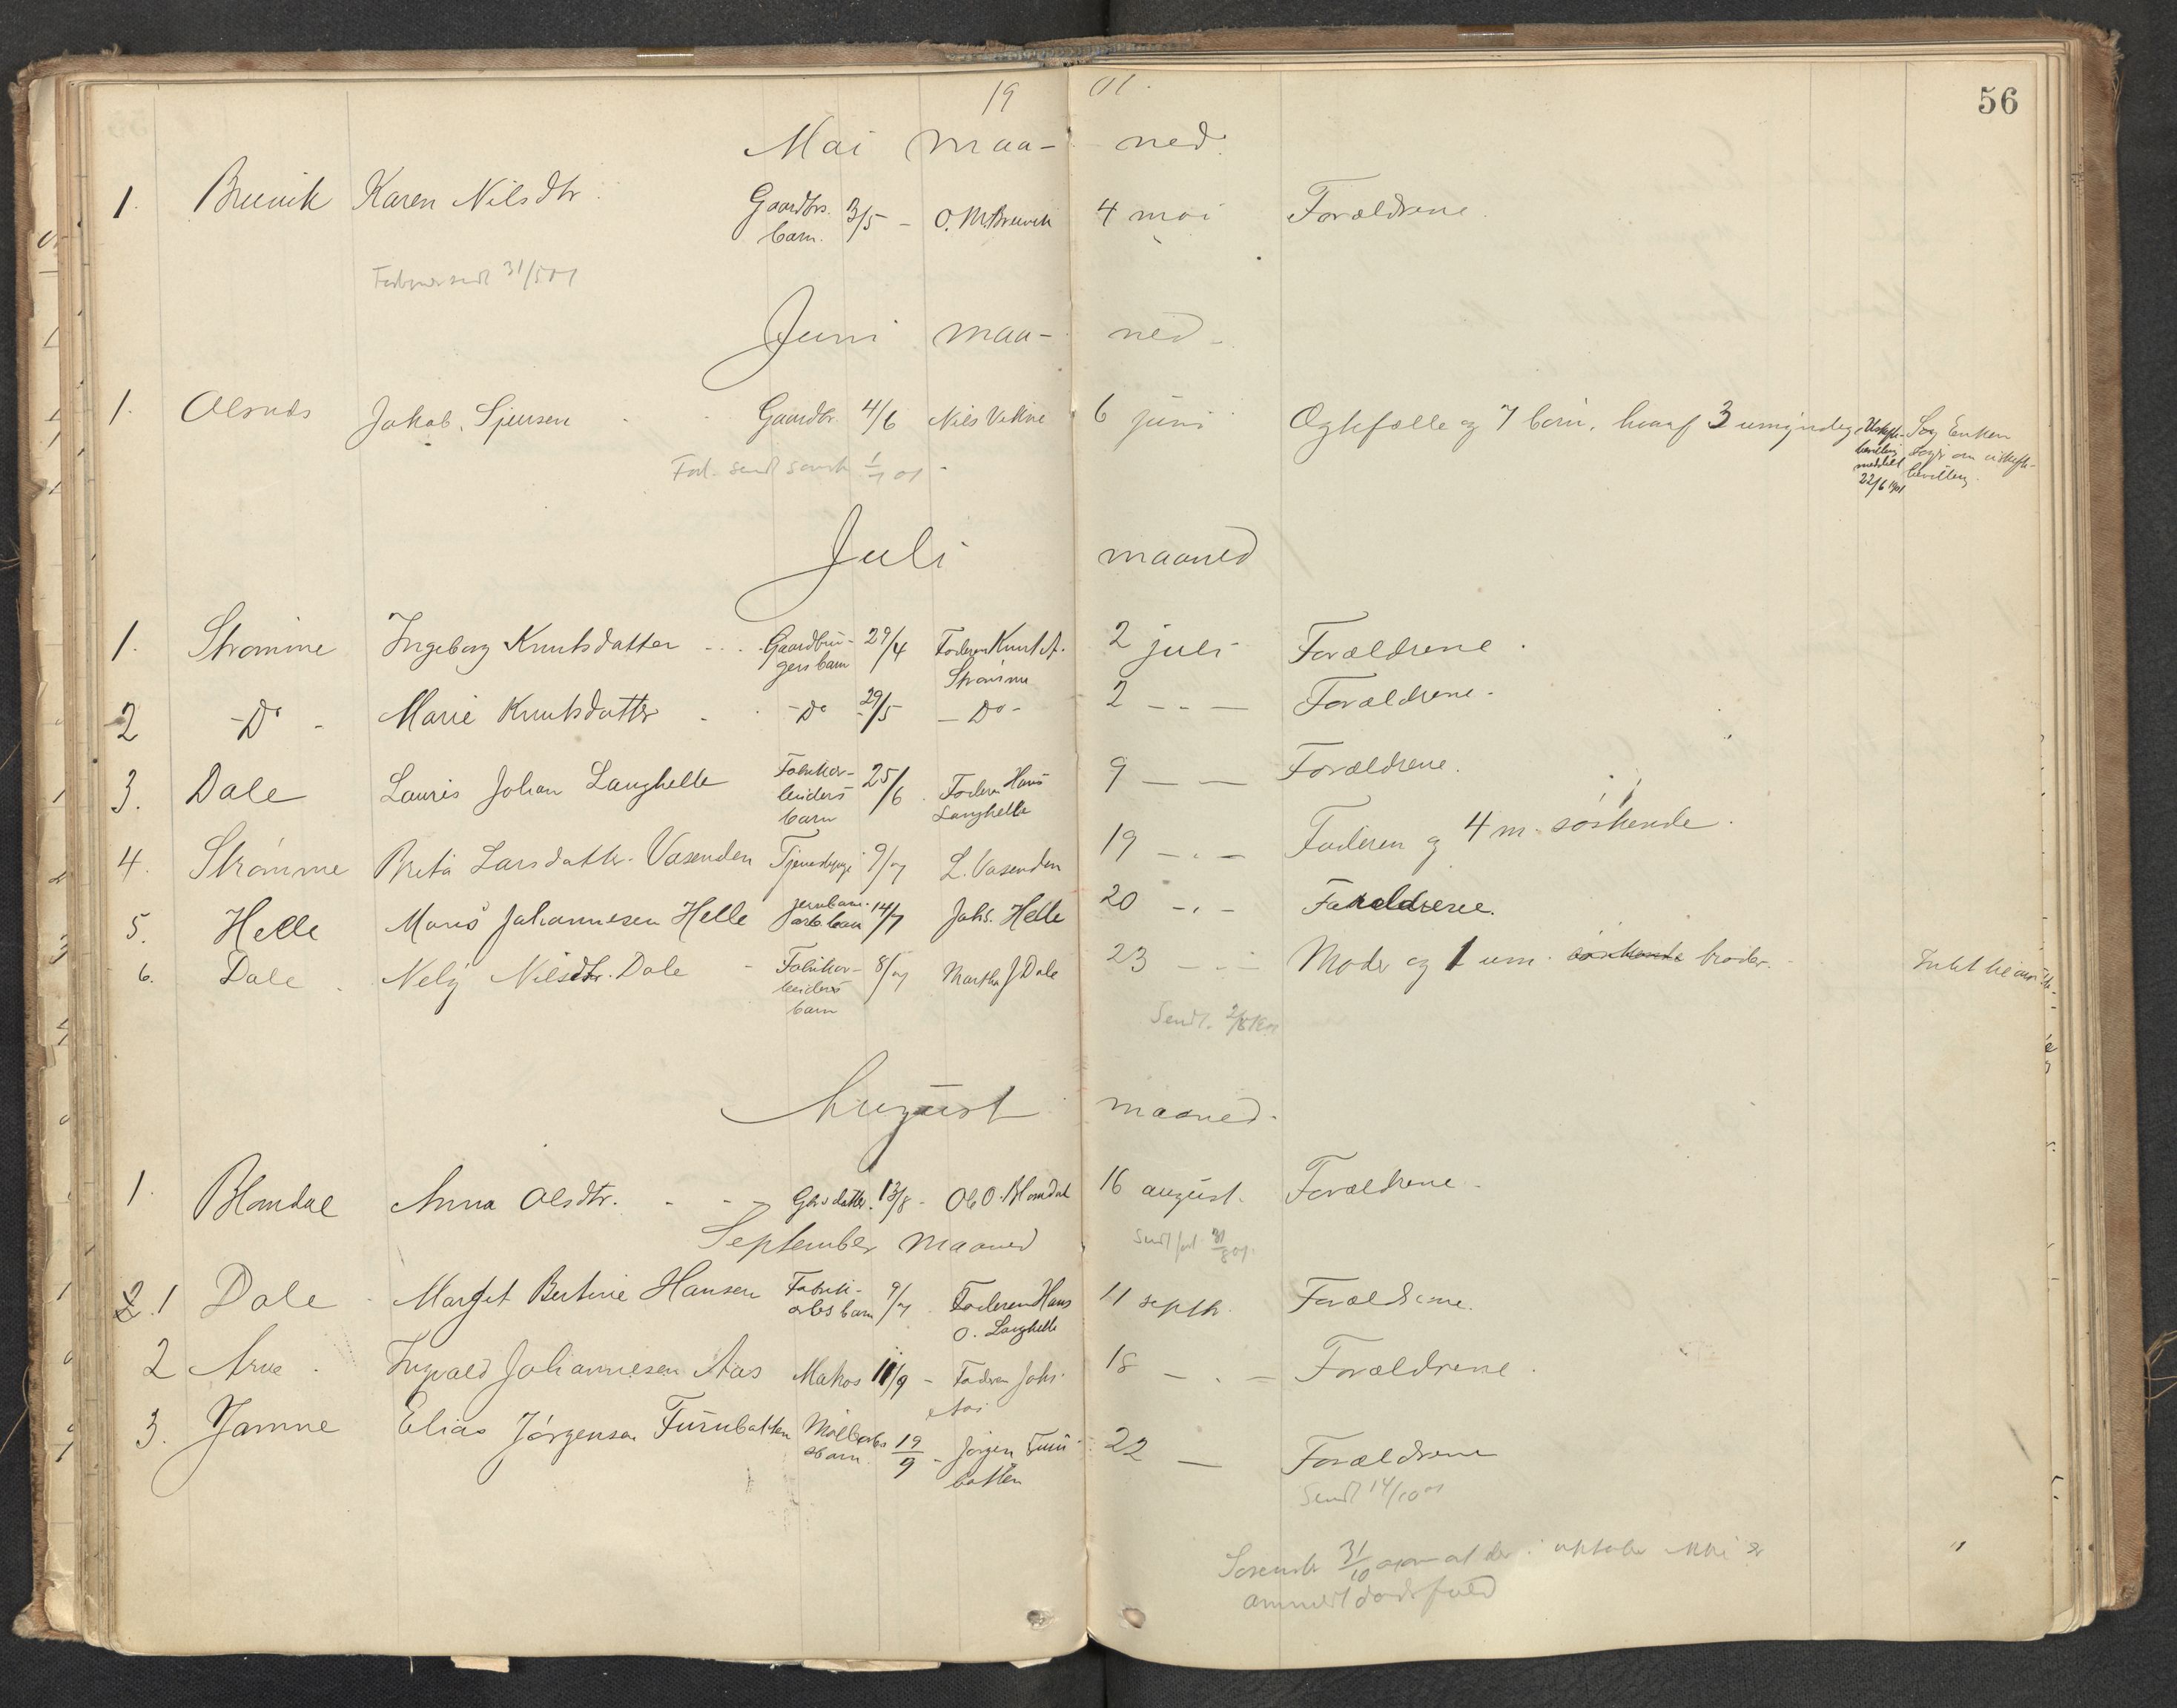 19 01.
56
Mai maa- ned.
1. Bruvik Karen Nilsdtr. Gaardbrs. barn. 3/5 - O. M. Bruvik 4 mai Forældrene.
sendt 31/5 01
Juni maa- ned -
1. Olsnes Jakob Sjursen Gaardbr. 4/6 Nils Veline 6 juni Ægtefælle og 7 børn, hvoraf 3 umyndige
Uskifte- bevilling meddelt 22/6 1901
Sag Enken søger om uskifte- bevilling.
Fort. sendt sorensk 1/7 01 -
Juli maaned
1. Strømme Ingeborg Knutsdatter Gaardbru- gers barn 29/4 Faderen Knut A. Strømme 2 juli Forældrene.
2 - Do - Marie Knutsdatter - Do 29/5 - Do - 2 - - - Forældrene.
3. Dale Lauris Johan Langhelle Fabrikar- beiders barn 25/6 Faderen Hans Langhelle 9 - - Forældrene.
4. Strømme Brita Larsdatter Vasenden Tjenestepige 9/7 L. Vasenden 19 - - Faderen og 4 m. søskende.
5. Helle Mons Johannesen Helle Jernban. arb. barn 14/7 Johs. Helle 20 - - Forældrene.
6. Dale Nely Nilsdtr. Dale - Fabrikar- beiders barn 8/7 Martha J Dale 23 - - Moder og 1 um. søskende broder. Intet
Sendt. 2/8 1901
August maaned.
1. Blomdal Anna Olsdtr. - - - Gbrs datter. 13/8 - Ole O. Blomdal 16 august. Forældrene.
Sendt fort. 31/8 01.
September maaned
2.1 Dale Margit Bertine Hansen Fabrik- arbs barn 9/7 Faderen Hans O. Langhelle 11 septb. Forældrene.
2 Arna Ingvald Johannesen Aas 11/9 - Faderen Johs. Aas 18 - - - Forældrene.
3. Jamne Elias Jørgensen Furubotten Mølle barn. 19/9 - Jørgen Furu- botten 22 - Forældrene
Sendt 14/10 01
Sorensk 31/10 at der i oktober ikke er
anmeldt dødsfald
"